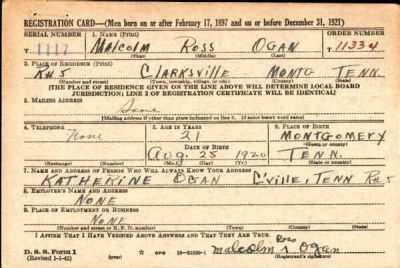 REGISTRATION CARD—(Men born on or after February 17, 1897 and on or before December 31, 1921)
SERIAL NUMBER 1. NAME (Print) ORDER NUMBER
MALCOLM ROSS OGAN 11334
(First) (Middle) (Last)
2. PLACE OF RESIDENCE (Print)
R#5 CLARKSVILLE MONTG TENN.
(Number and street) (Town, township, village, or city) (County) (State)
[THE PLACE OF RESIDENCE GIVEN ON THE LINE ABOVE WILL DETERMINE LOCAL BOARD
JURISDICTION; LINE 2 OF REGISTRATION CERTIFICATE WILL BE IDENTICAL]
3. MAILING ADDRESS
Same
[Mailing address if other than place indicated on line 2. If same insert word same]
4. TELEPHONE 5. AGE IN YEARS 6. PLACE OF BIRTH
None 21 MONTGOMERY
DATE OF BIRTH (Town or county)
AUG. 25 1920 TENN.
(Exchange) (Number) (Mo.) (Day) (Yr.) (State or country)
7. NAME AND ADDRESS OF PERSON WHO WILL ALWAYS KNOW YOUR ADDRESS
KATHERINE OGAN C'VILLE, TENN R#5
8. EMPLOYER'S NAME AND ADDRESS
NONE
9. PLACE OF EMPLOYMENT OR BUSINESS
NONE
(Number and street or R. F. D. number) (Town) (County) (State)
I AFFIRM THAT I HAVE VERIFIED ABOVE ANSWERS AND THAT THEY ARE TRUE.
D. S. S. Form 1 GPO Malcolm Ross Ogan
(Revised 1-1-42) (over) (Registrant's signature)